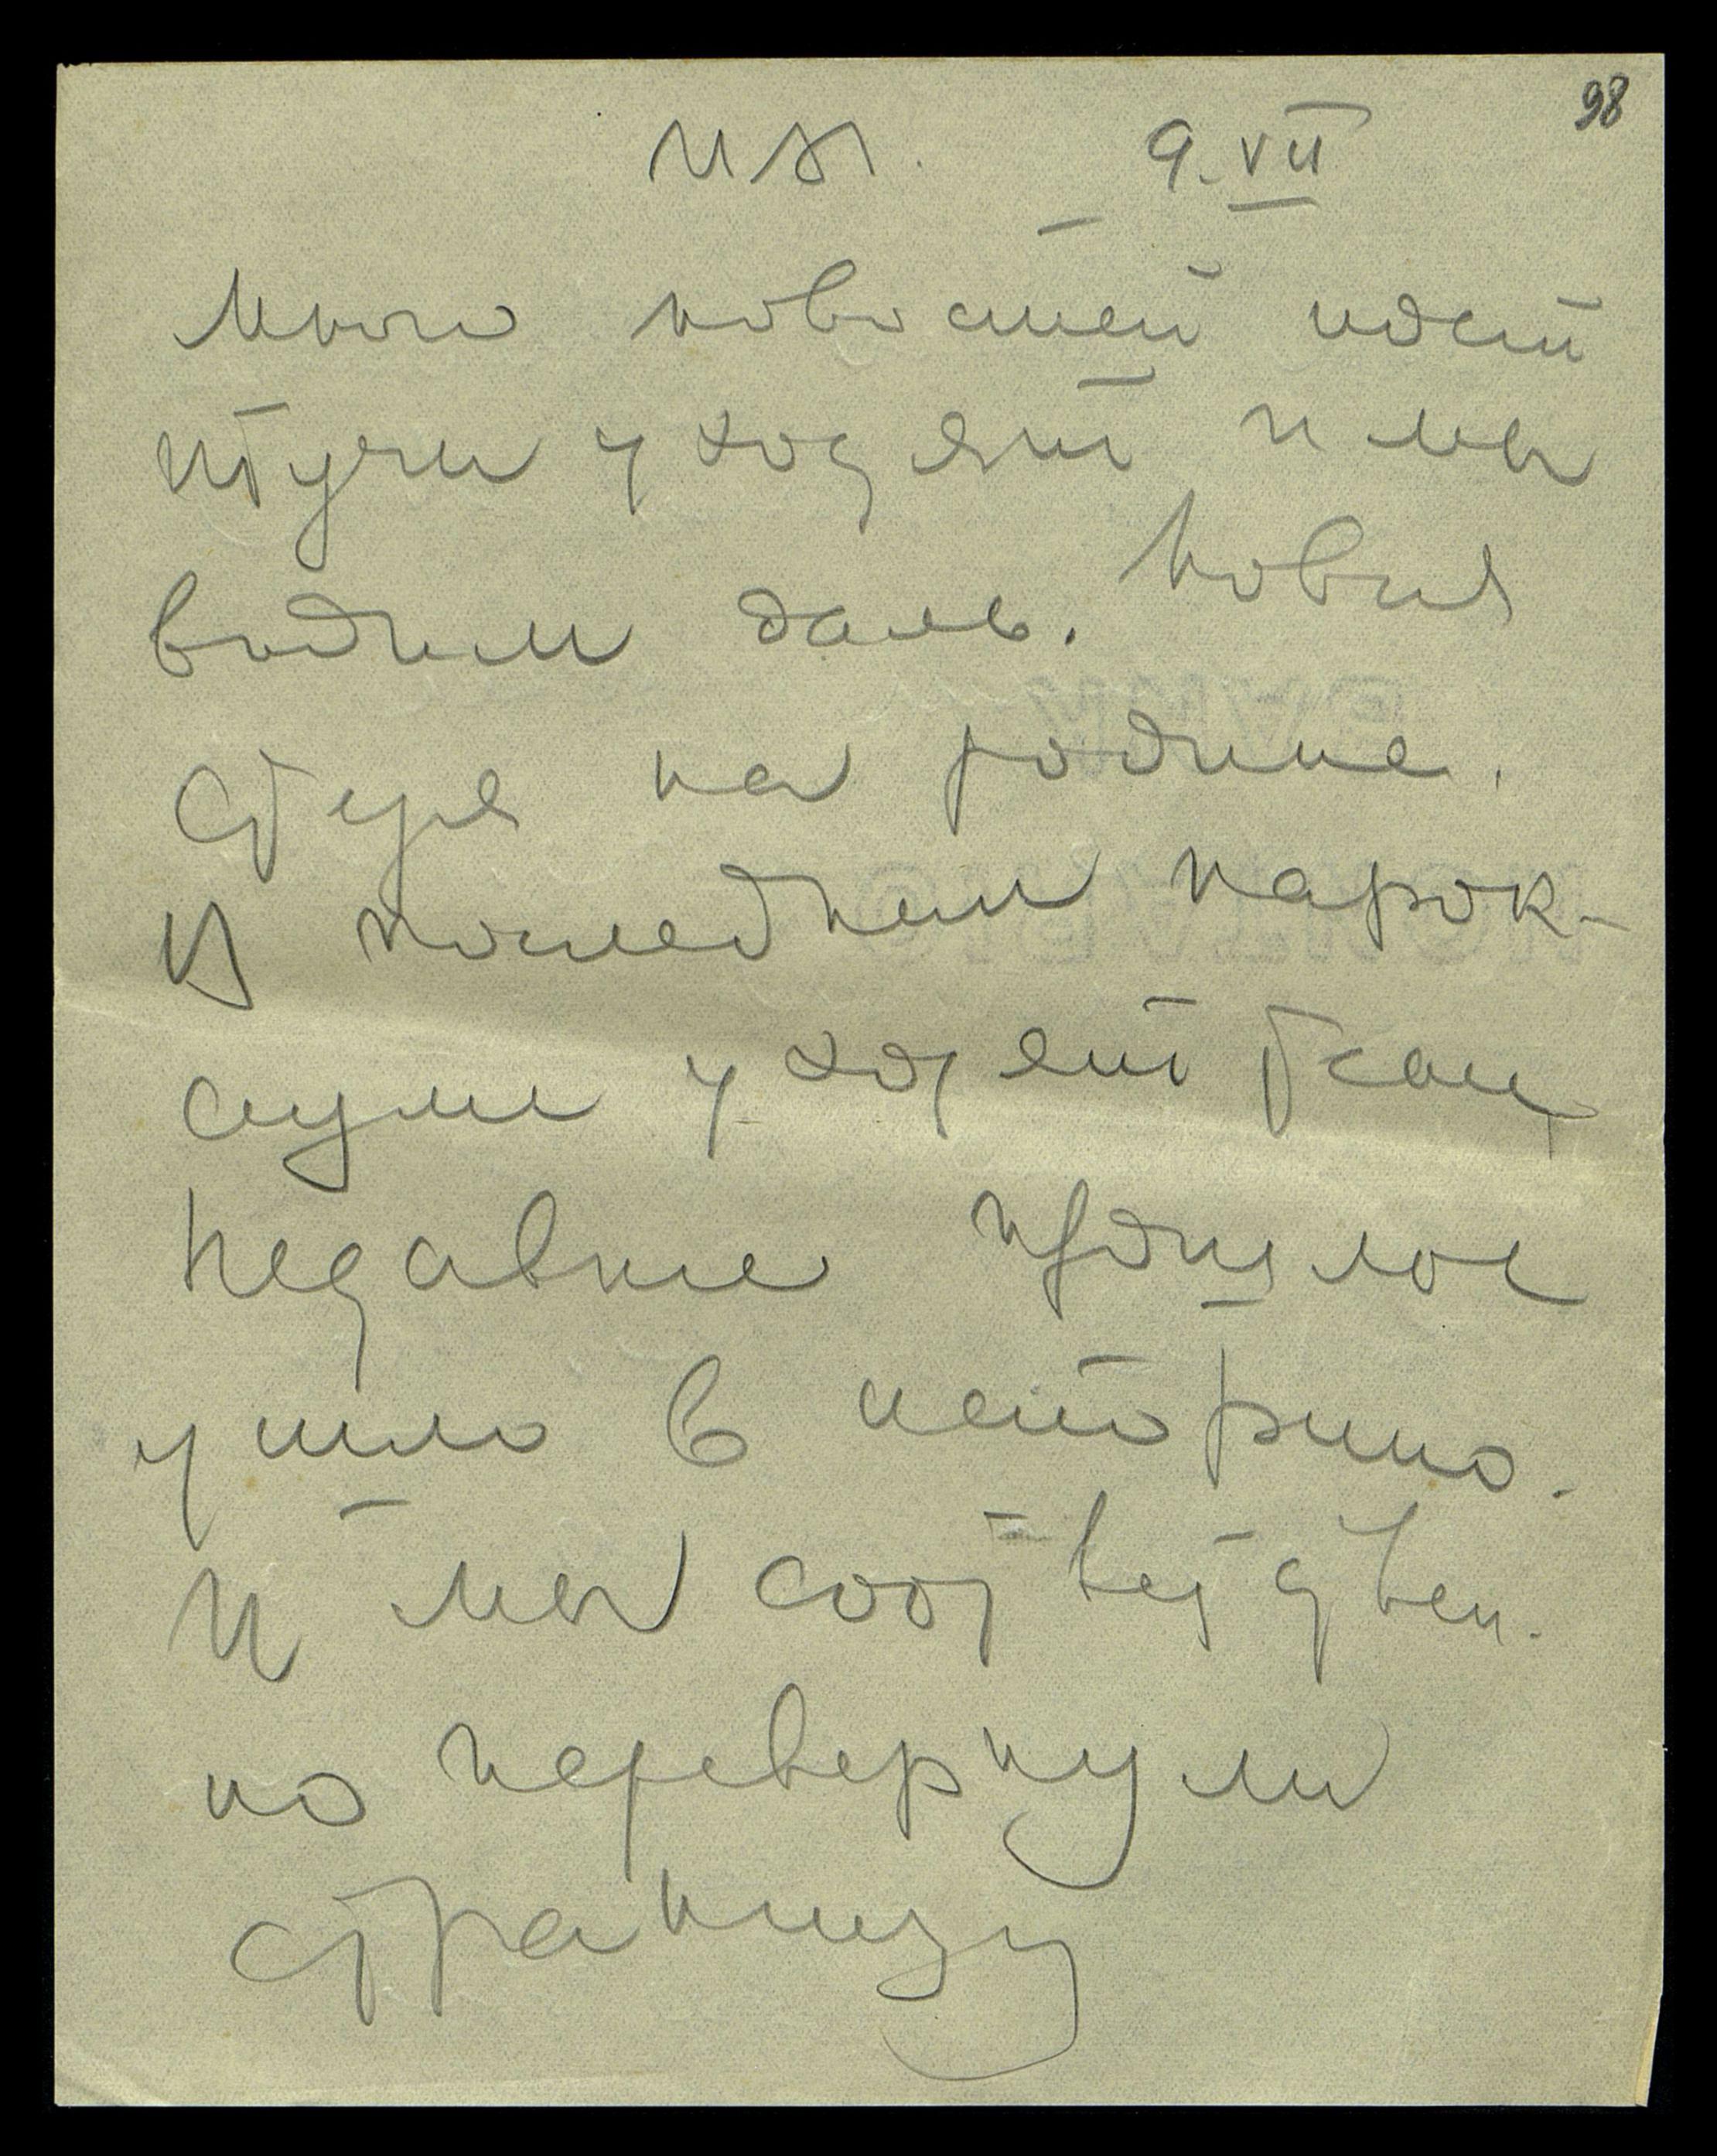 98
9.VII
Много новостей идет
тучи уходят и мы
видим даль. Новая
на родине.
В последнем парок-
сизме уходят
Недавнее прошлое
ушло в историю.
И мы соответствен.
но перевернули
страницу